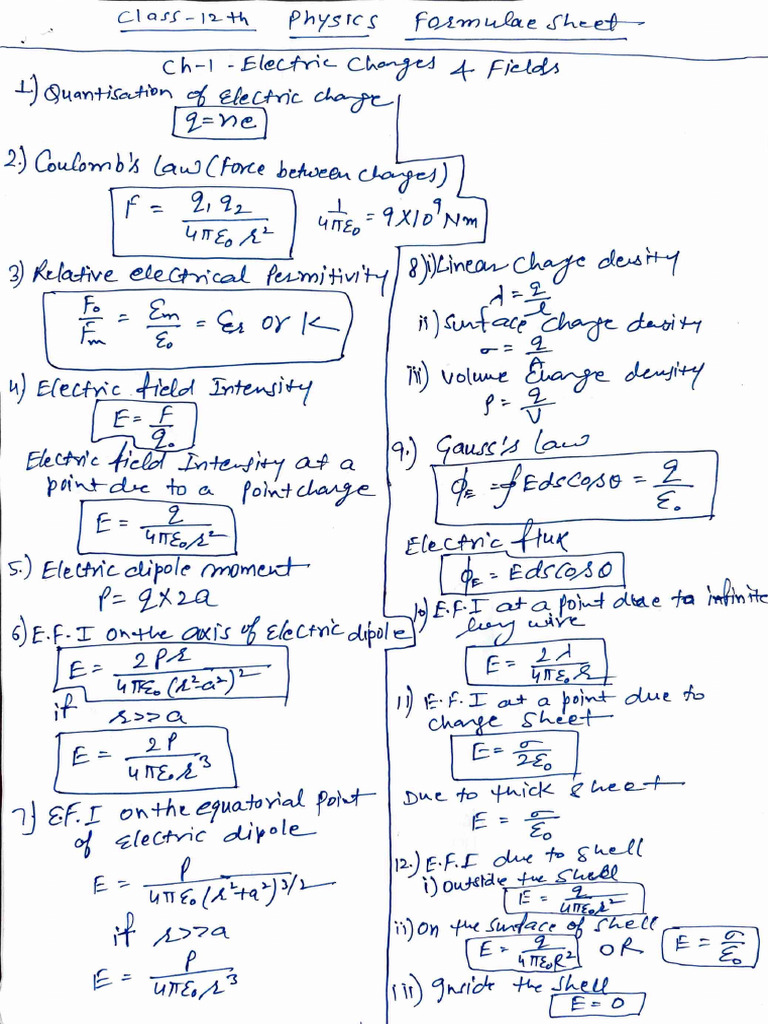 Class-12th Physics Formulae Sheet
Ch-1 - Electric Charges & Fields
1) Quantisation of electric charge
q = ne
2.) Coulomb's Law (Force between charges)
F = q₁ q₂ / 4πε₀ r²   1/4πε₀ = 9×10⁹ Nm
3) Relative electrical Permitivity
F₀/Fm = εm/ε₀ = εr or K
4) Electric field Intensity
E = F/q₀
Electric field Intensity at a
point due to a point charge
E = q / 4πε₀r²
5.) Electric dipole moment
P = q × 2a
6) E.F.I on the axis of electric dipole
E = 2Pr / 4πε₀ (r²-a²)²
if r>>a
E = 2P / 4πε₀r³
7) E.F.I on the equatorial point
of electric dipole
E = P / 4πε₀ (r²+a²)^3/2
if r>>a
E = P / 4πε₀r³
8) i) Linear charge density
λ = q/l
ii) Surface charge density
σ = q/A
iii) Volume charge density
ρ = q/V
9.) Gauss's Law
ϕE = ∮Eds cosθ = q/ε₀
Electric flux
ϕE = Eds cosθ
10) E.F.I at a point due to infinite
long wire
E = 2λ / 4πε₀r
11) E.F.I at a point due to
charge sheet
E = σ/2ε₀
Due to thick sheet
E = σ/ε₀
12.) E.F.I due to shell
i) Outside the shell
E = q / 4πε₀r²
ii) On the surface of shell
E = q / 4πε₀R² OR E = σ/ε₀
iii) Inside the shell
E = 0